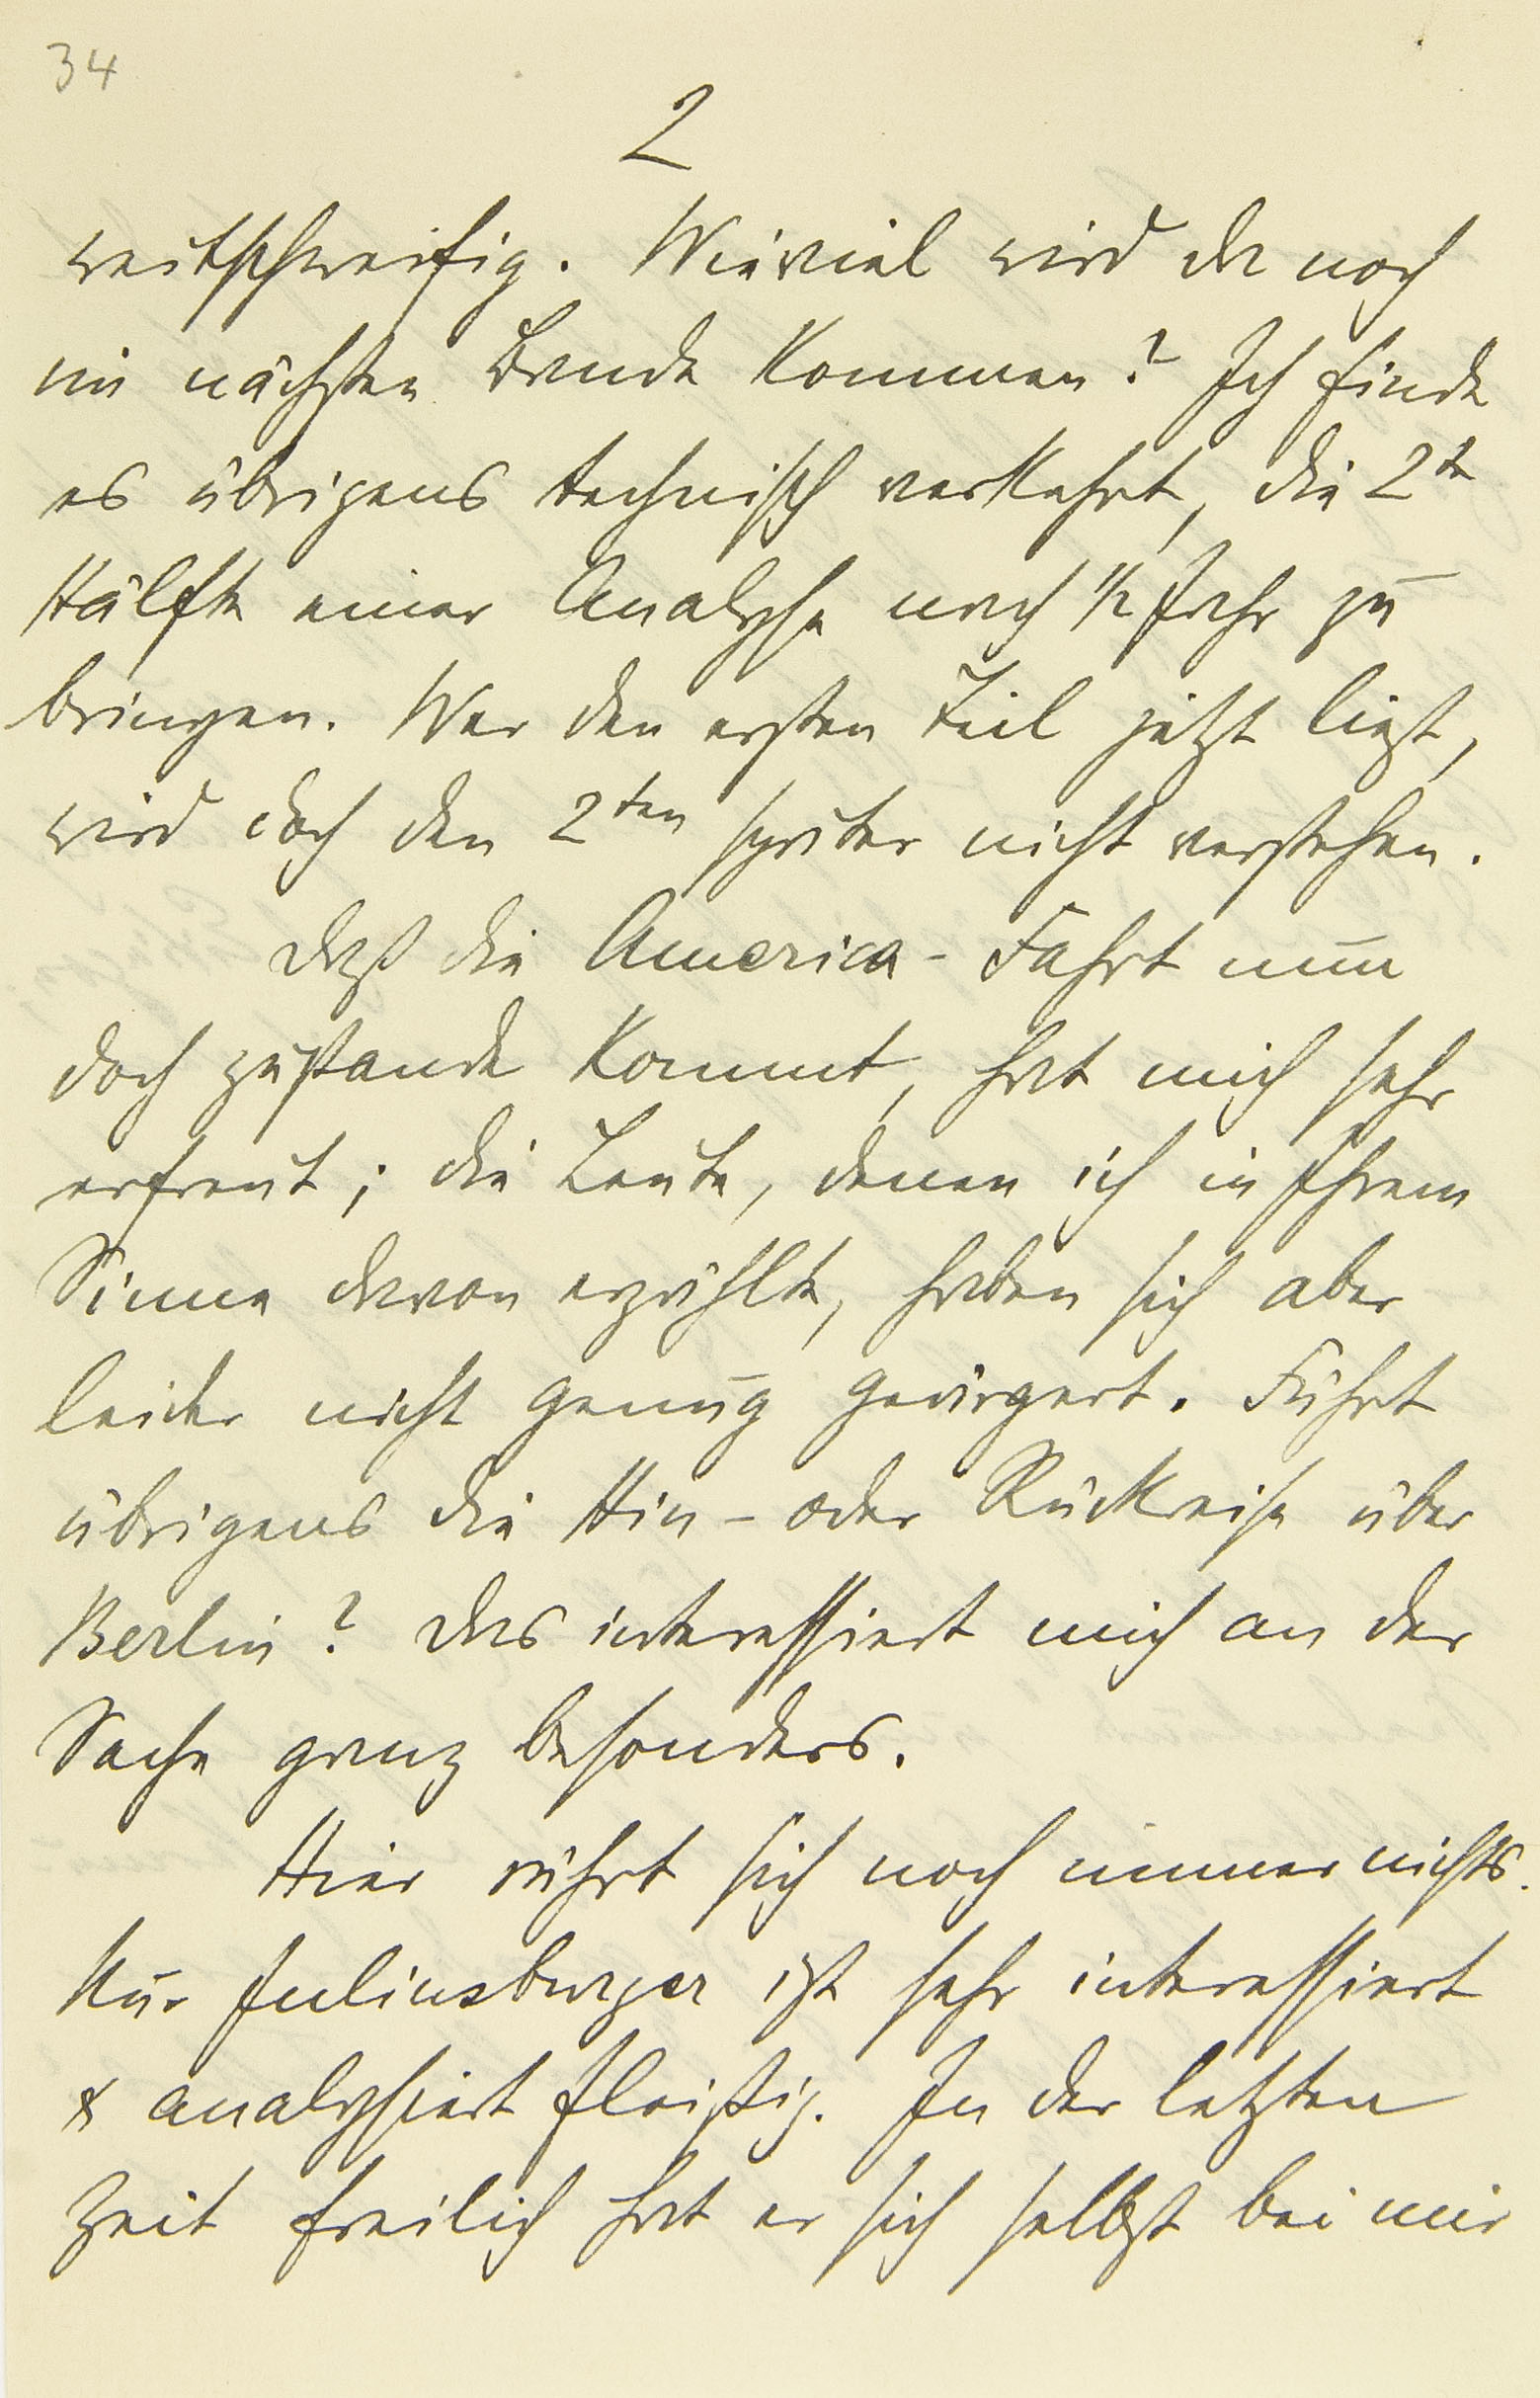 34
2
weitschweifig. Wieviel wird da noch
im nächsten Bande kommen? Ich finde
es übrigens technisch verkehrt, die 2te
Hälfte einer Analyse nach 1/2 Jahr zu
bringen. Wer den ersten Teil jetzt liest,
wird doch den 2ten später nicht verstehen.
Daß die America-Fahrt nun
doch zustande kommt, hat mich sehr
erfreut; die Leute, denen ich in Ihrem
Sinne davon erzählte, haben sich aber
leider nicht genug geärgert. Führt
übrigens die Hin- oder Rückreise über
Berlin? Das interessiert mich an der
Sache ganz besonders.
Hier rührt sich noch immer nichts.
Nur Juliusburger ist sehr interessiert
& analysiert fleißig. In der letzten
Zeit freilich hat er sich selbst bei mir